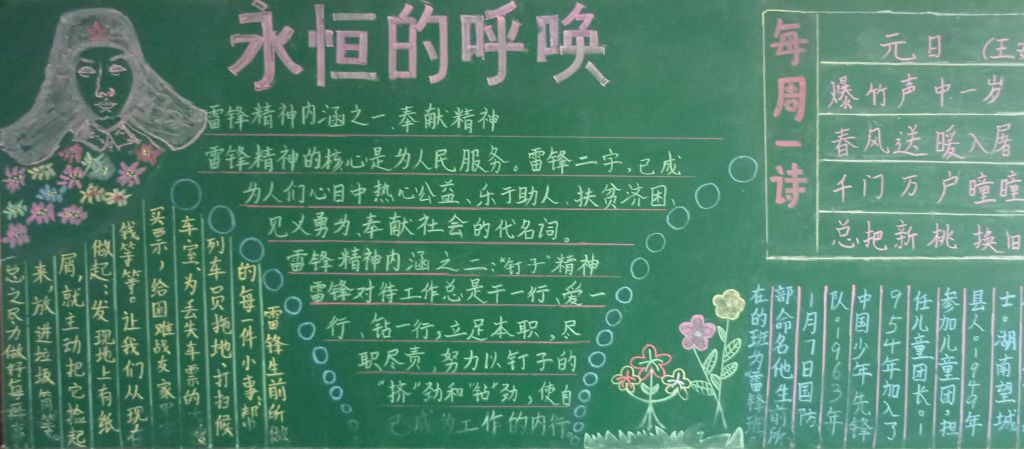 永恒的呼唤
雷锋精神内涵之一、奉献精神
雷锋精神的核心是为人民服务。雷锋二字,已成
为人们心目中热心公益、乐于助人、扶贫济困、
见义勇为、奉献社会的代名词。
雷锋精神内涵之二:“钉子”精神
雷锋对待工作总是干一行、爱一
行、钻一行,立足本职,尽
职尽责,努力以钉子的
“挤”劲和“钻”劲,使自
己成为工作的内行
雷锋生前所做
的每一件小事,帮
列车员拖地、打扫候
车室、为丢失车票的
买票,给困难战友家
钱等等。让我们从现在
做起:发现地上有纸
屑,就主动把它捡起
来,放进垃圾筒等等
总之尽力做好每
每周一诗
元日 (王
爆竹声中一岁
春风送暖入屠
千门万户曈曈
总把新桃换旧
士。湖南望城
县人。1949年
参加儿童团,担
任儿童团长。1
954年加入了
中国少年先锋
队。1963年
1月7日国防
部命名他生前所
在的班为雷锋班。